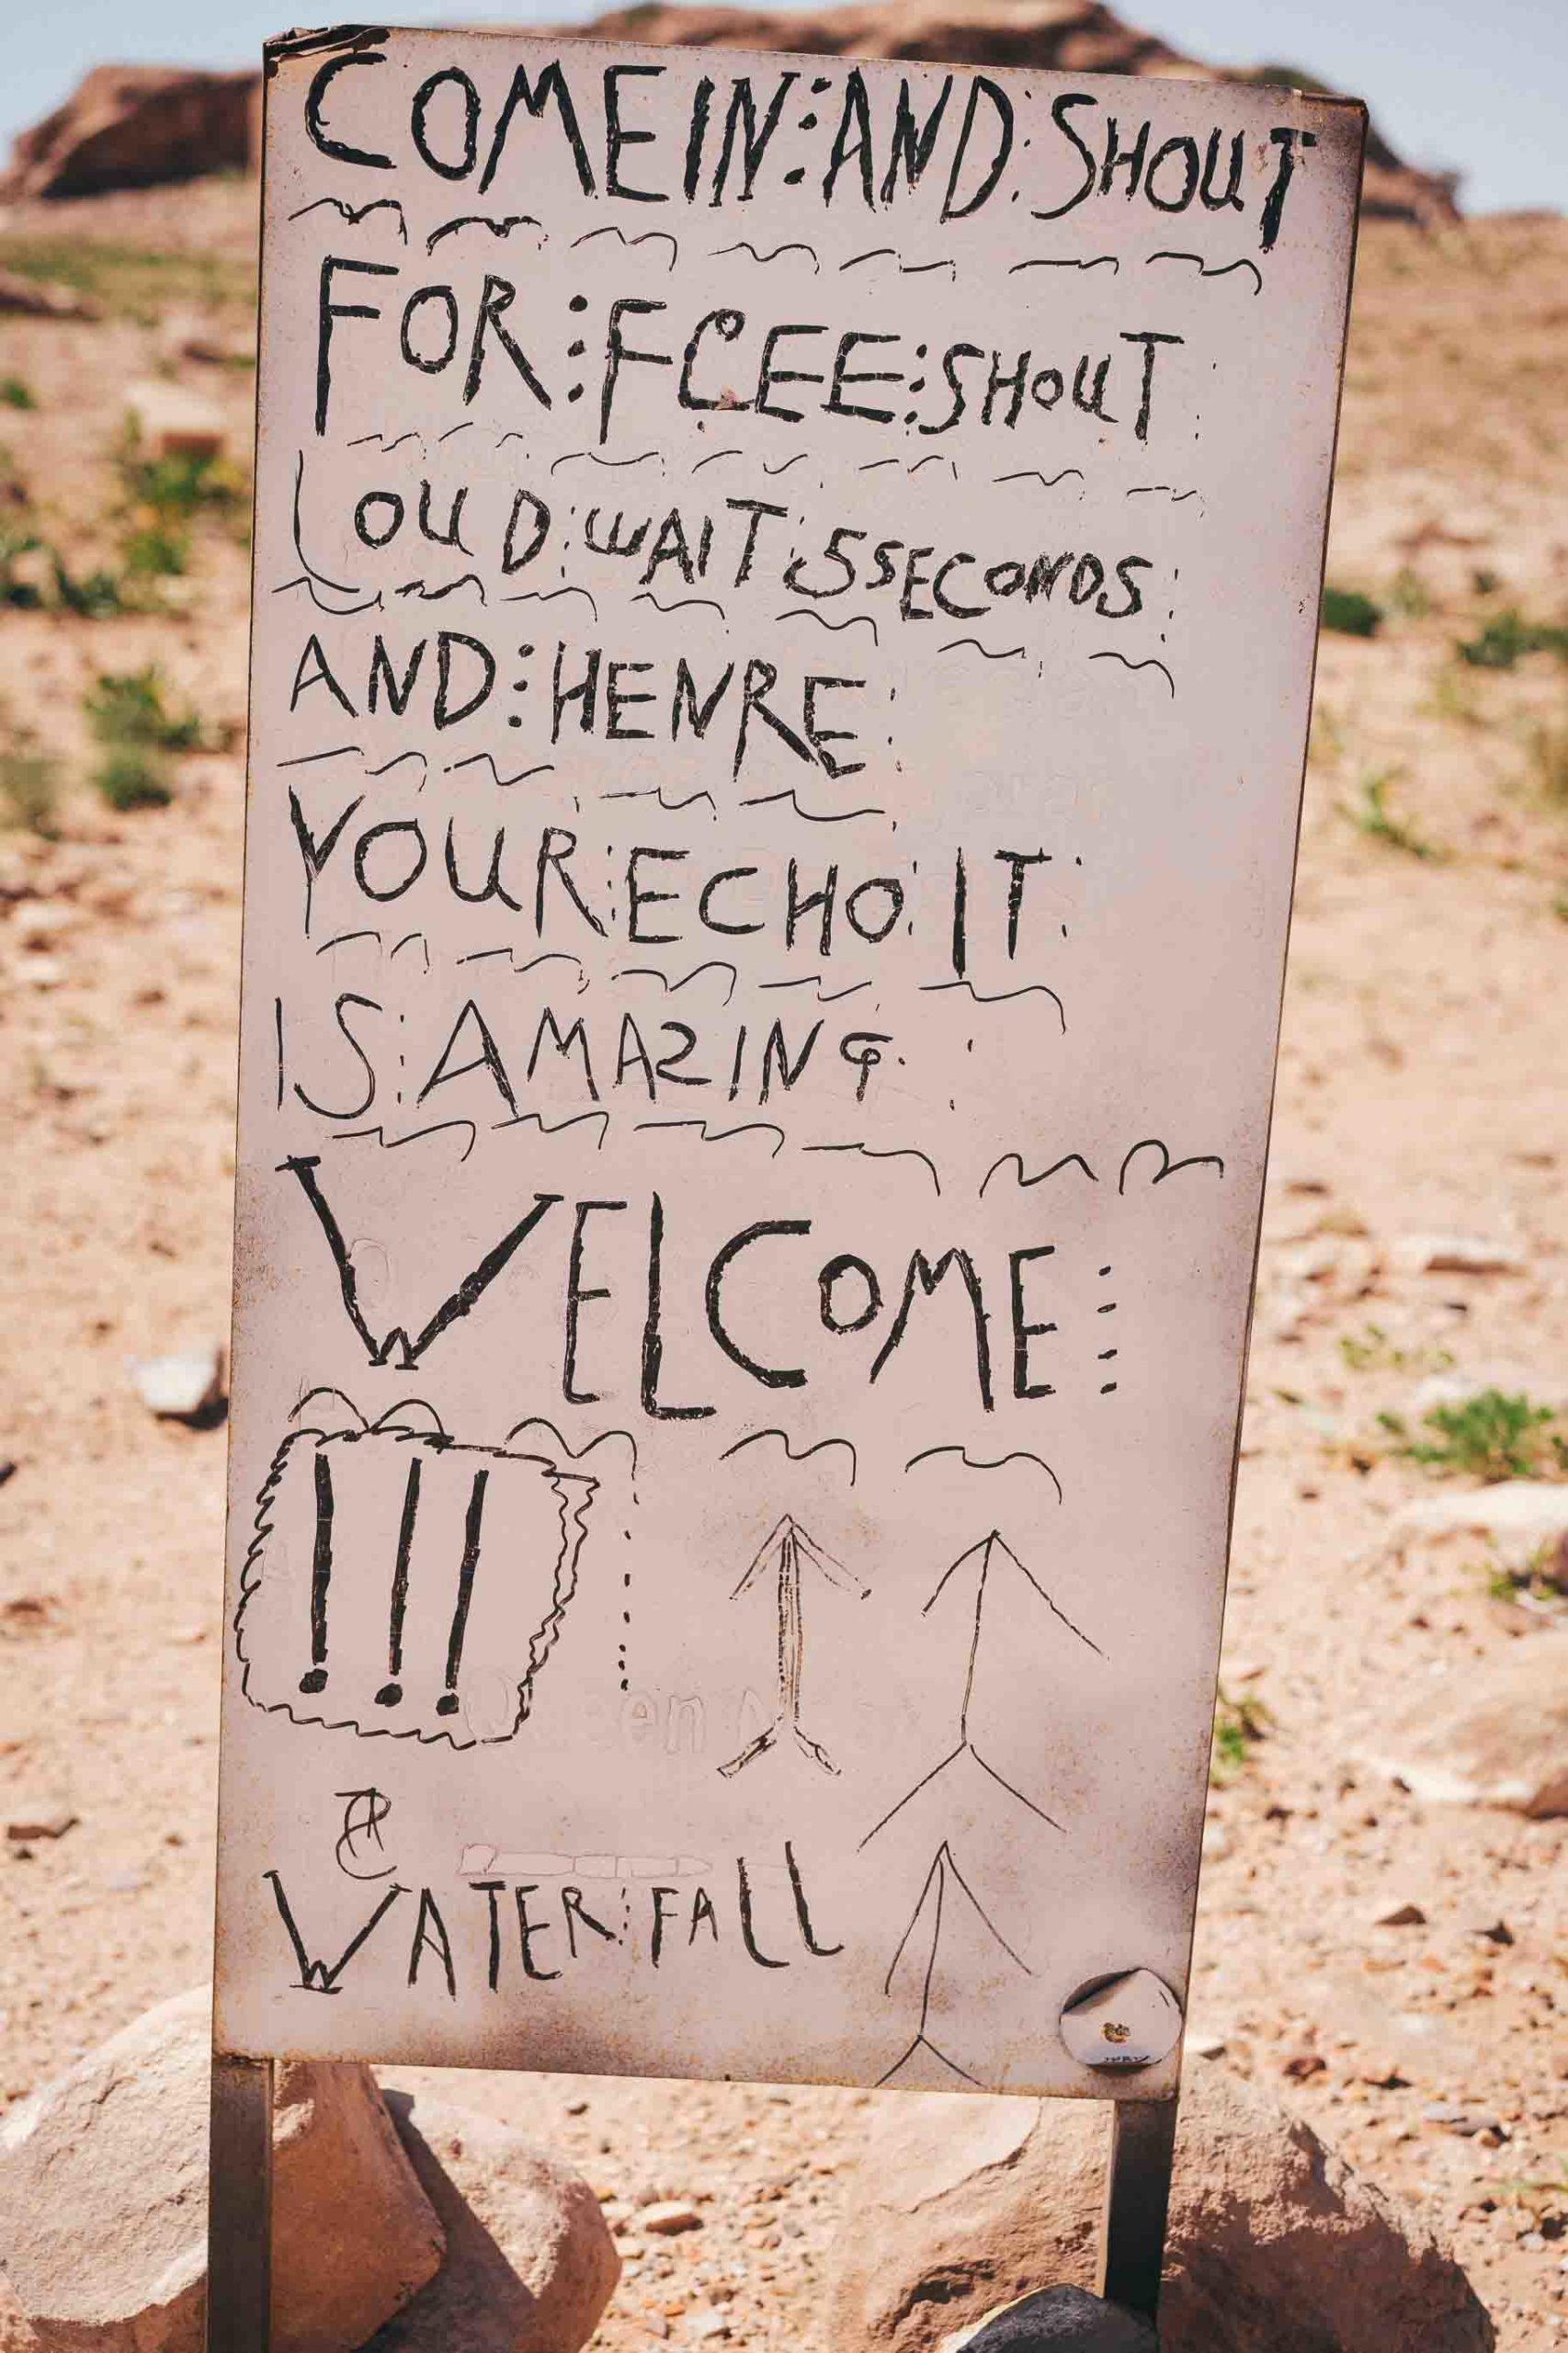 COME IN:AND:SHOUT
FOR:FCEE:SHOUT:
LOUD:WAIT:5SECONDS:
AND:HENRE:
YOUR:ECHO:IT:
IS:AMAZING.:
WELCOME:
!!!
WATER:FALL